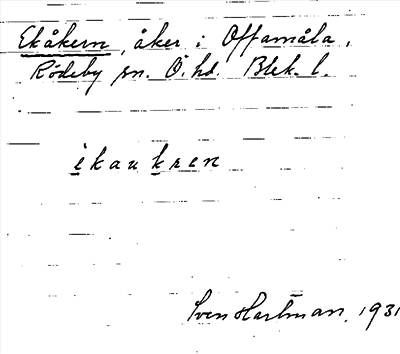 Ekåkern, åker i Offamåla,
Rödeby sn. Ö. hd. Blek. l.
ekaukren
Sven Hartman. 1931